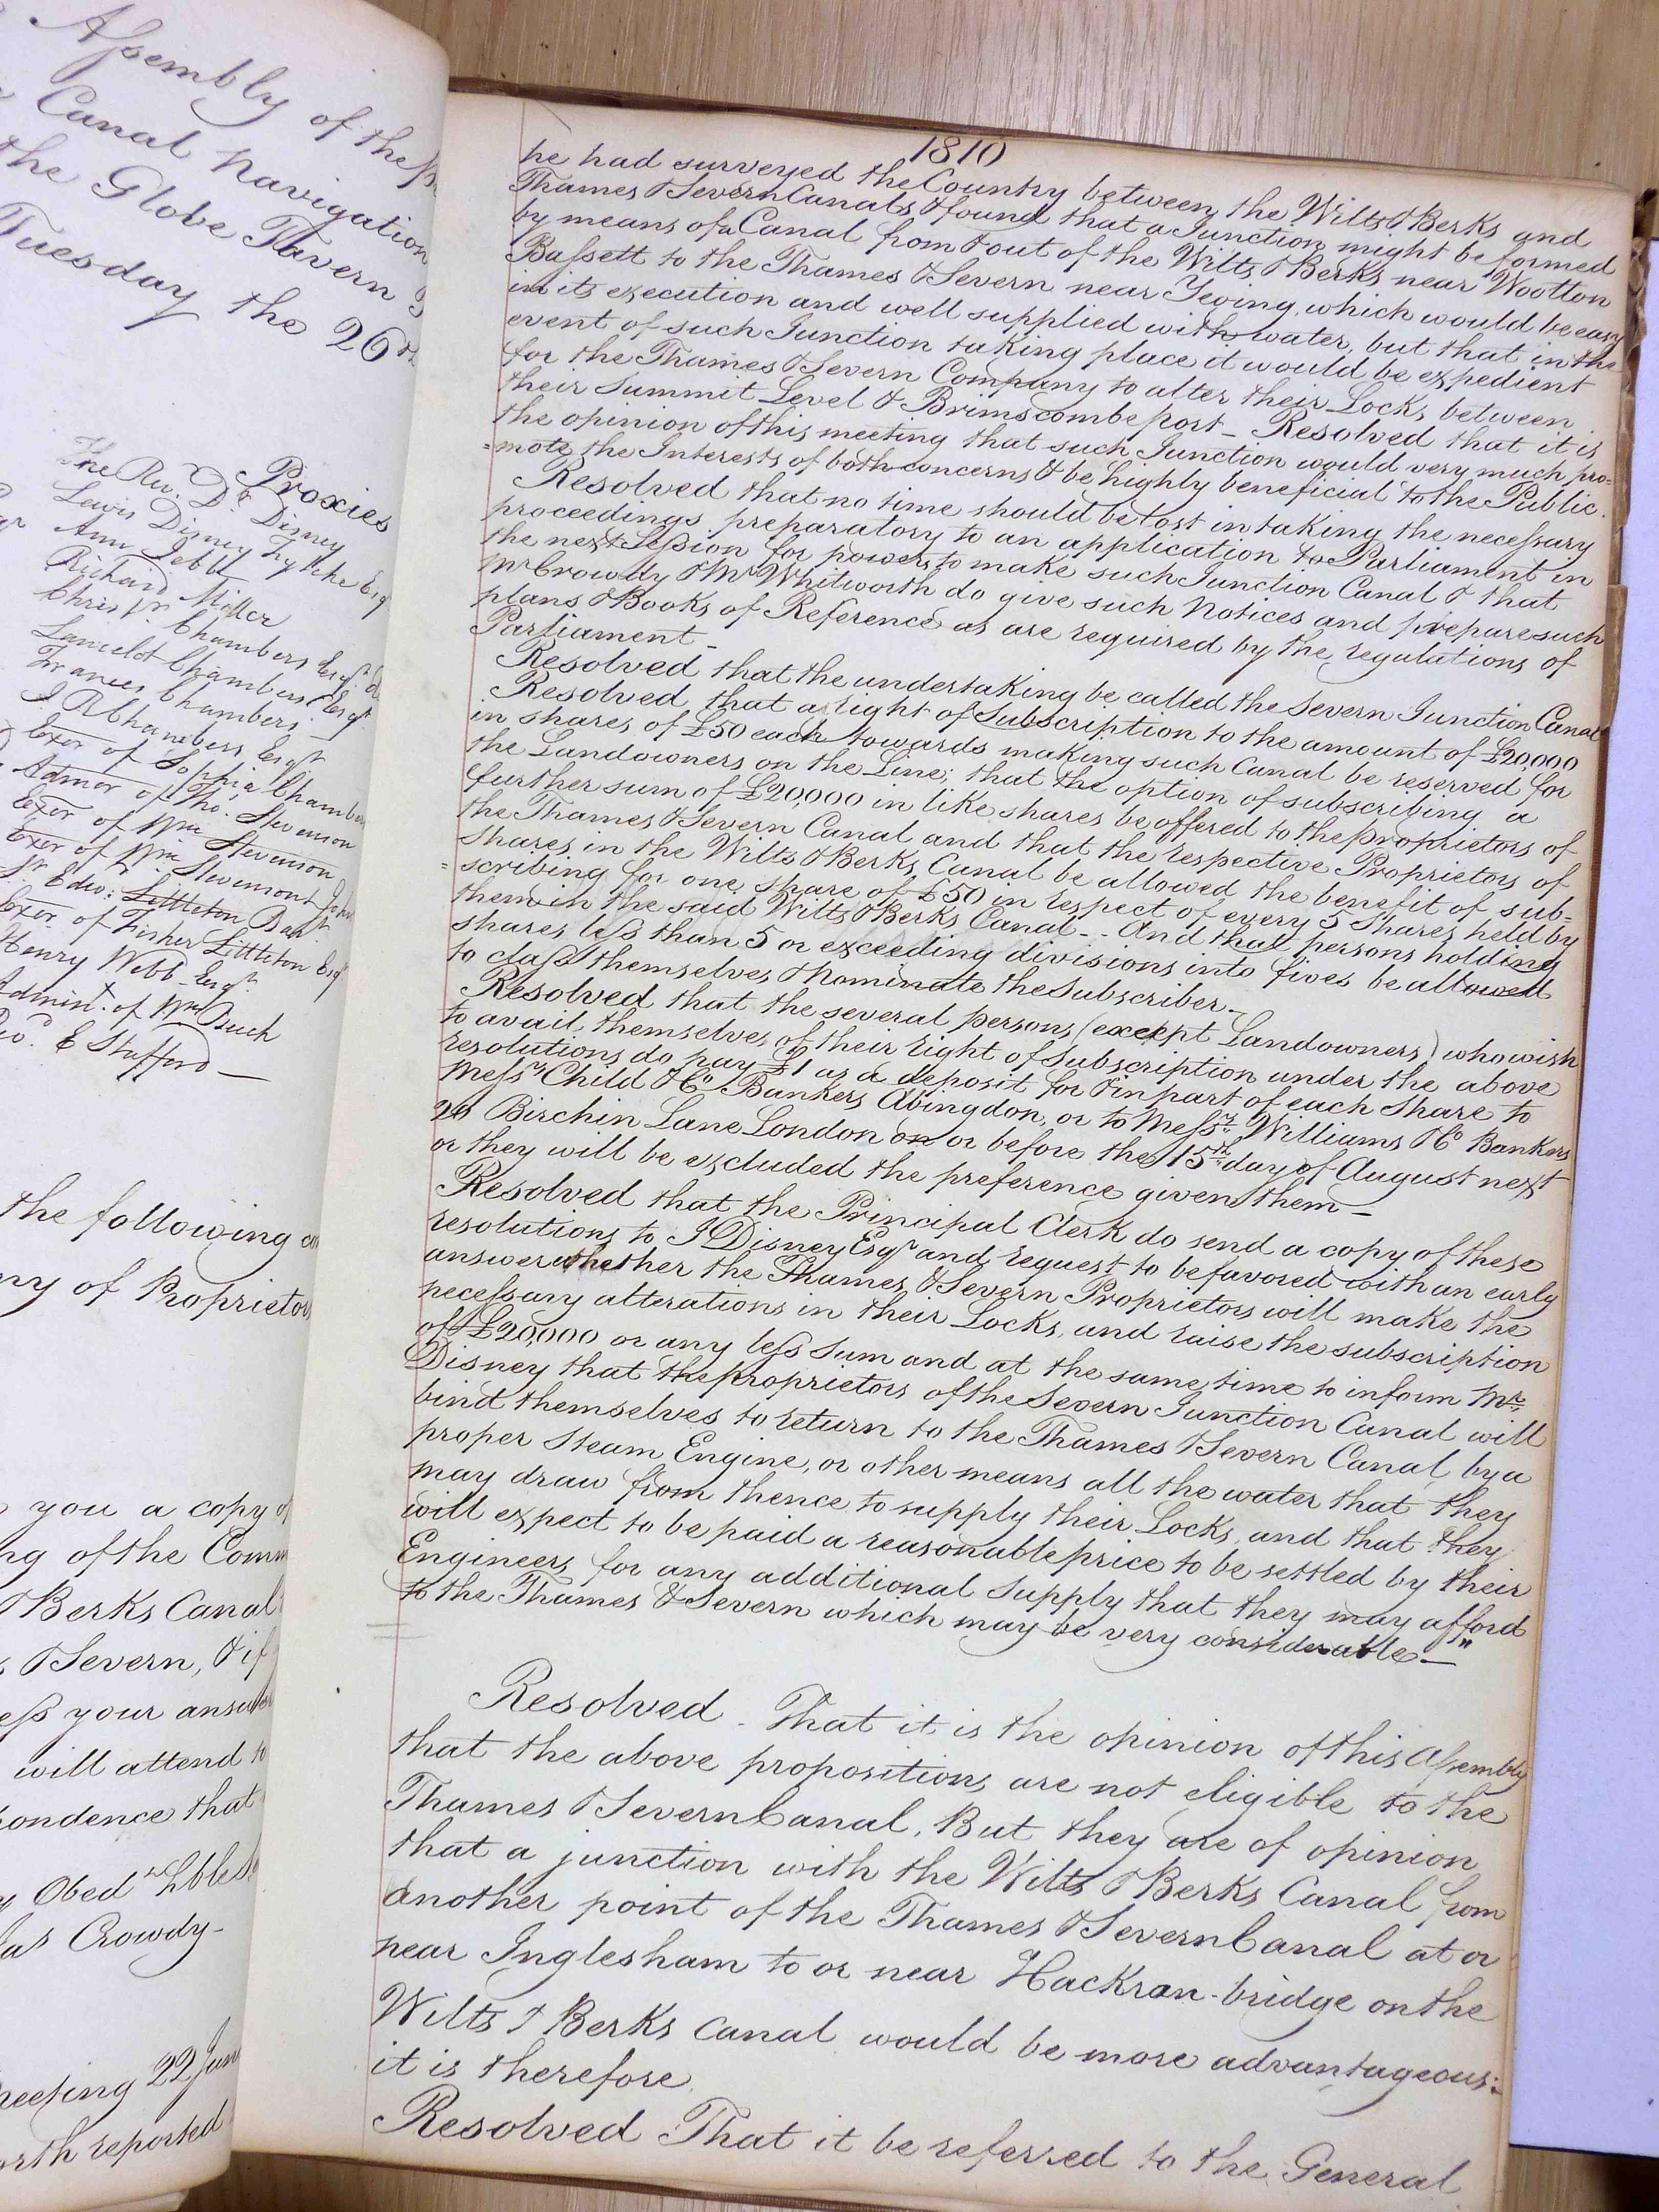 Assembly of the
Canal Navigation
the Globe Tavern
Tuesday the 26th
Proxies
The Rev. Dr. Disney
Lewis Disney Fytche Esq
Ann Jebb
Richard Miller
Chrisr. Chambers Esqr.
Lancelot Chambers Esqr.
Frances Chambers
J R Chambers Esqr
Exor of Sophia Chambers
Admor of Tho. Stevenson
Exor of Wm Stevenson
Exor of Wm Stevenson
Sr. Edwd. Littleton Bart.
Exor of Fisher Littleton Esqr
Henry Webb Esqr.
Administ. of Wm Such
E Stafford —
the following
of Proprietors
you a copy of
of the Comm
& Berks Canal
& Severn, & if
your answer
will attend to
that
Obed Hble
Crowdy -
meeting 22 June
reported
1810
he had surveyed the Country between the Wilts & Berks and
Thames & Severn Canals & found that a Junction might be formed
by means of a Canal from & out of the Wilts & Berks near Wootton
Bassett to the Thames & Severn near Yewing, which would be easy
in its execution and well supplied with water, but that in the
event of such Junction taking place it would be expedient
for the Thames & Severn Company to alter their Locks between
their Summit Level & Brimscombe port _ Resolved that it is
the opinion of this meeting that such Junction would very much pro=
=mote the Interests of both concerns & be highly beneficial to the Public.
Resolved that no time should be lost in taking the necessary
proceedings preparatory to an application to Parliament in
the next Session for powers to make such Junction Canal & that
Mr Crowdy & Mr Whitworth do give such Notices and prepare such
plans & Books of Reference as are required by the regulations of
Parliament _
Resolved that the undertaking be called the Severn Junction Canal
Resolved that a right of Subscription to the amount of £20,000
in shares of £50 each towards making such Canal be reserved for
the Landowners on the Line; that the option of subscribing a
further sum of £20,000 in like shares be offered to the proprietors of
the Thames & Severn Canal and that the respective Proprietors of
shares in the Wilts & Berks Canal be allowed the benefit of sub=
=scribing for one share of £50 in respect of every 5 Shares held by
them in the said Wilts & Berks Canal - - And that persons holding
shares less than 5 or exceeding divisions into fives be allowed
to class themselves & nominate the Subscriber _
Resolved that the several persons (except Landowners) who wish
to avail themselves of their right of Subscription under the above
resolutions do pay £1 as a deposit for & in part of each Share to
Messrs Child & Co. Bankers Abingdon, or to Messrs. Williams & Co Bankers
20 Birchin Lane London on or before the 15th day of August next
or they will be excluded the preference given them _
Resolved that the Principal Clerk do send a copy of these
resolutions to J Disney Esqr and request to be favored with an early
answer whether the Thames & Severn Proprietors will make the
necessary alterations in their Locks, and raise the subscription
of £20,000 or any less sum and at the same time to inform Mr.
Disney that the proprietors of the Severn Junction Canal will
bind themselves to return to the Thames & Severn Canal, by a
proper Steam Engine, or other means all the water that they
may draw from thence to supply their Locks, and that they
will expect to be paid a reasonable price to be settled by their
Engineers for any additional supply that they may afford
to the Thames & Severn which may be very considerable _"
Resolved - That it is the opinion of this Assembly
that the above propositions are not eligible to the
Thames & Severn Canal, But they are of opinion
that a junction with the Wilts & Berks Canal from
another point of the Thames & Severn Canal at or
near Inglesham to or near Hackran-bridge on the
Wilts & Berks Canal would be more advantageous:
it is therefore
Resolved That it be referred to the General